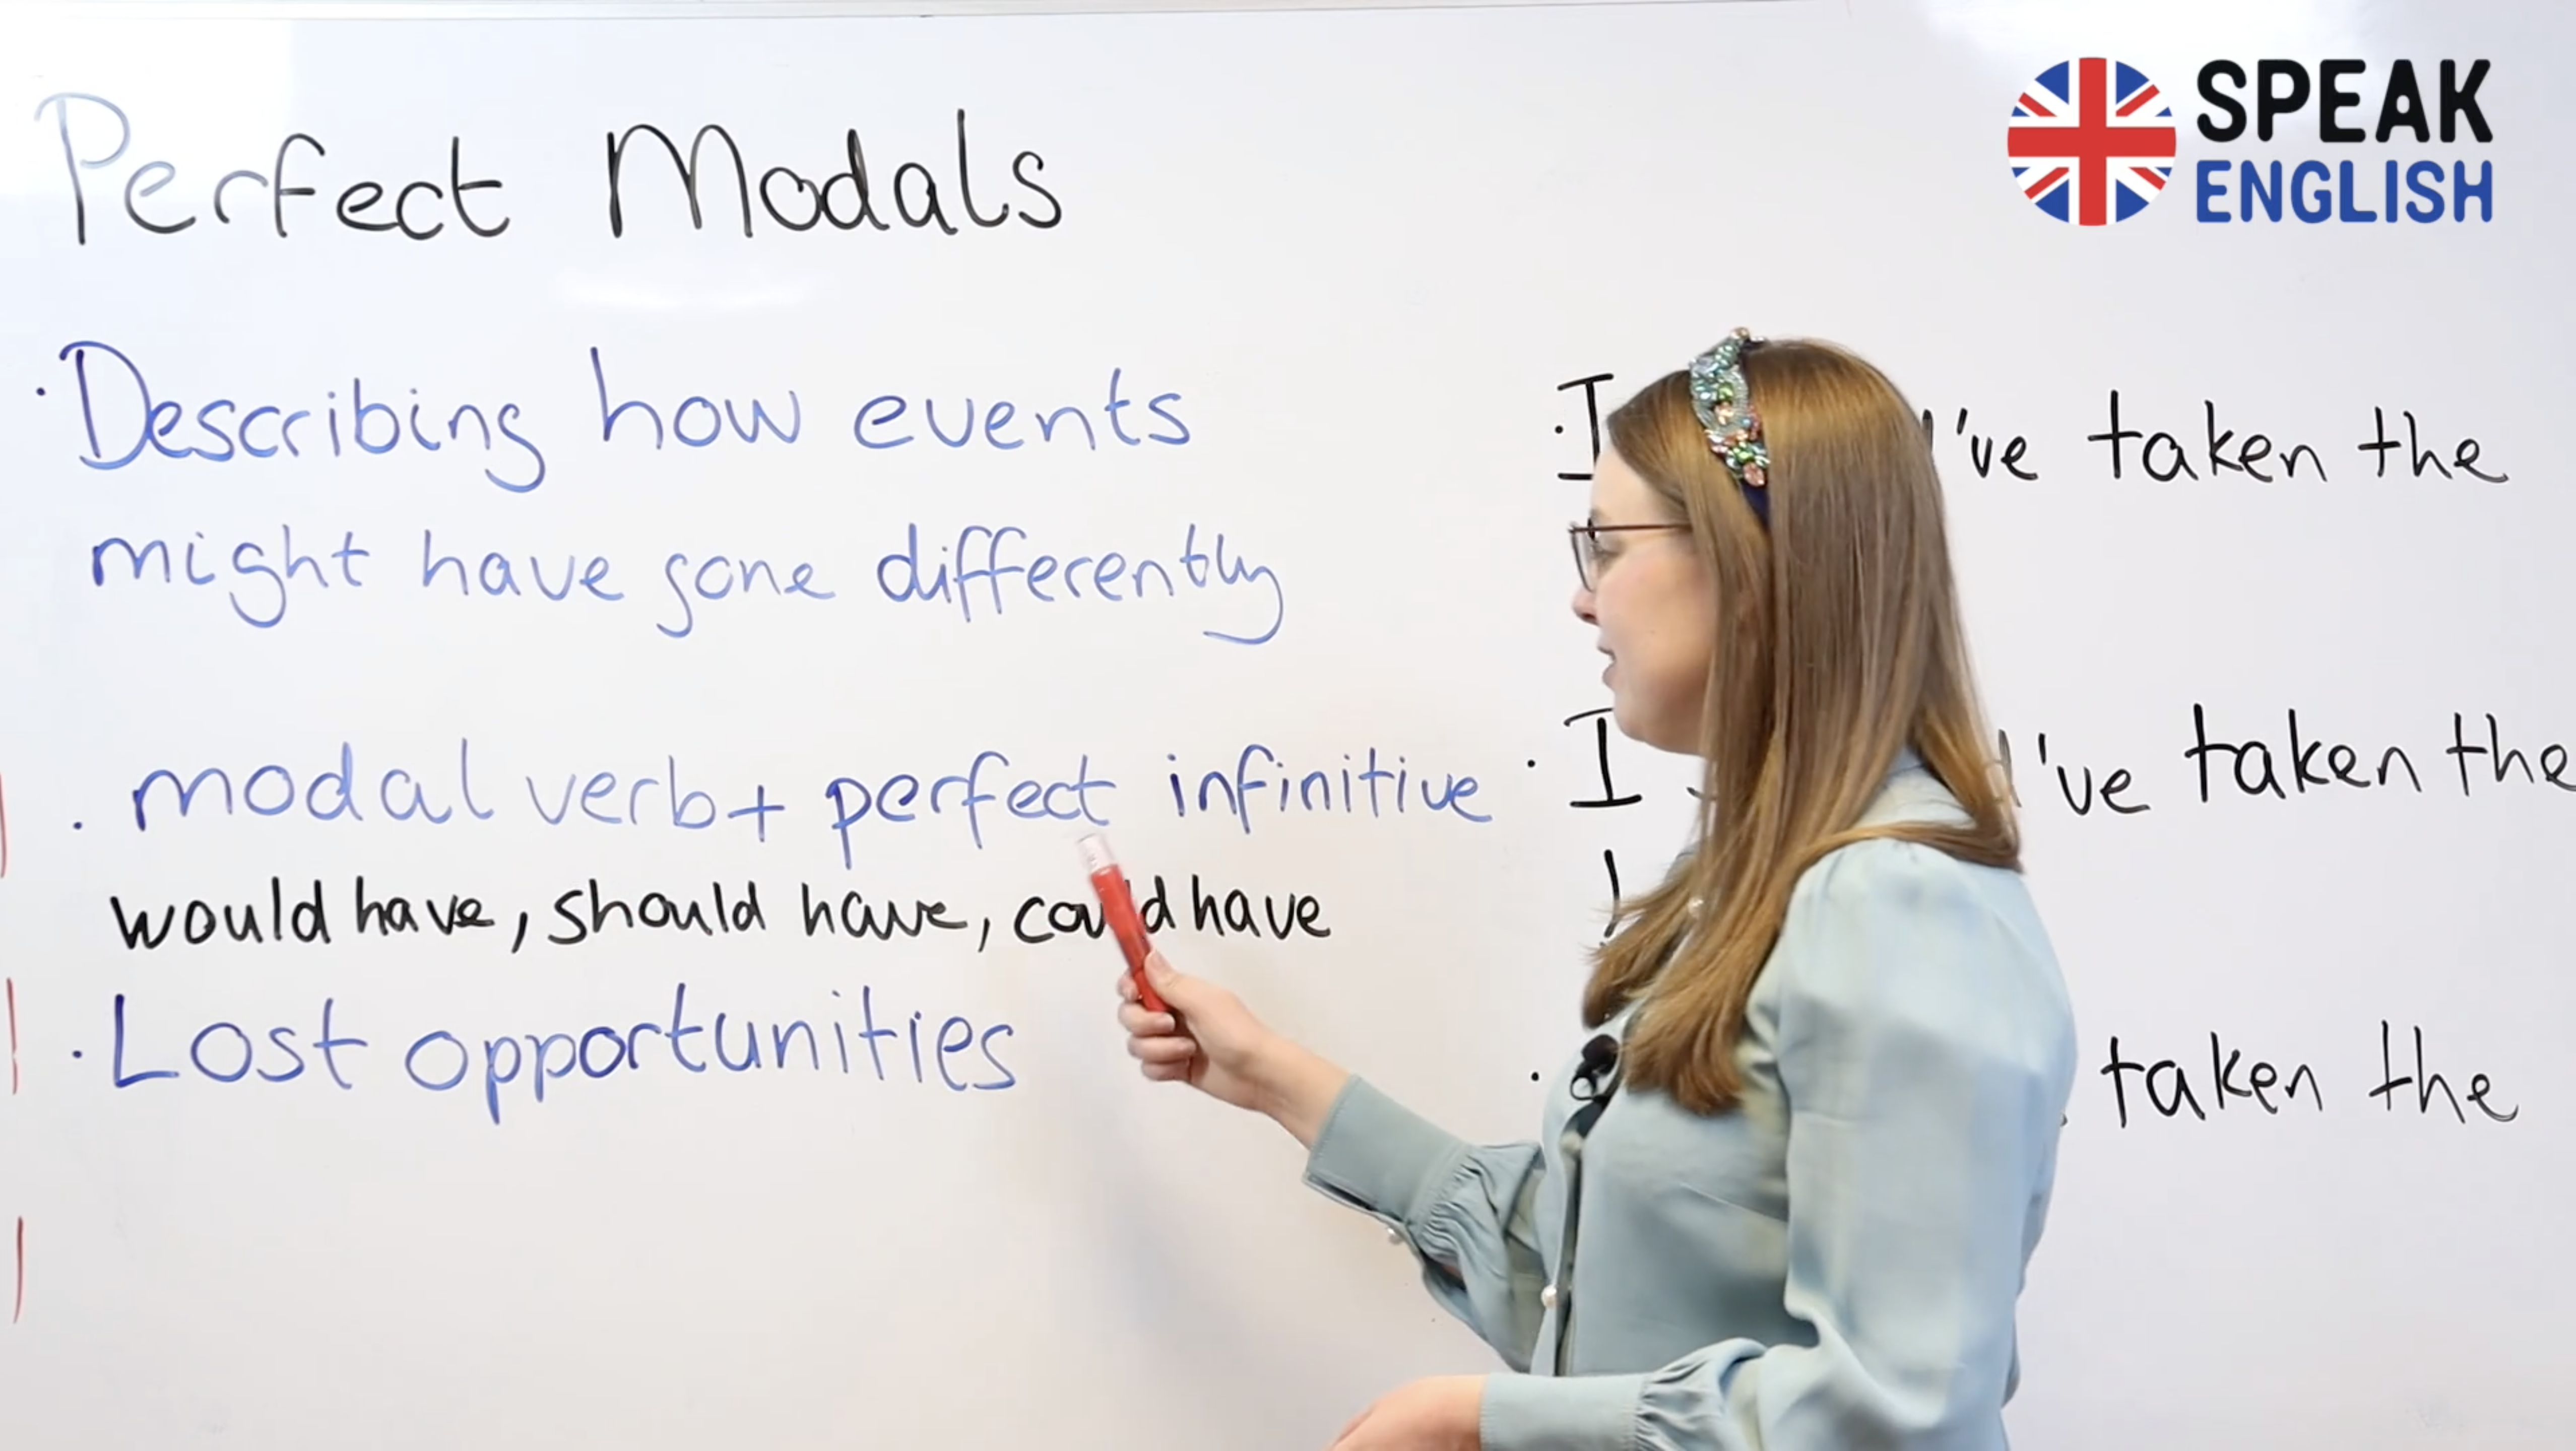 Perfect Modals
SPEAK
ENGLISH
· Describing how events
might have gone differently
· modal verb + perfect infinitive
would have, should have, could have
· Lost opportunities
· I 've taken the
· I 'd've taken the
· taken the